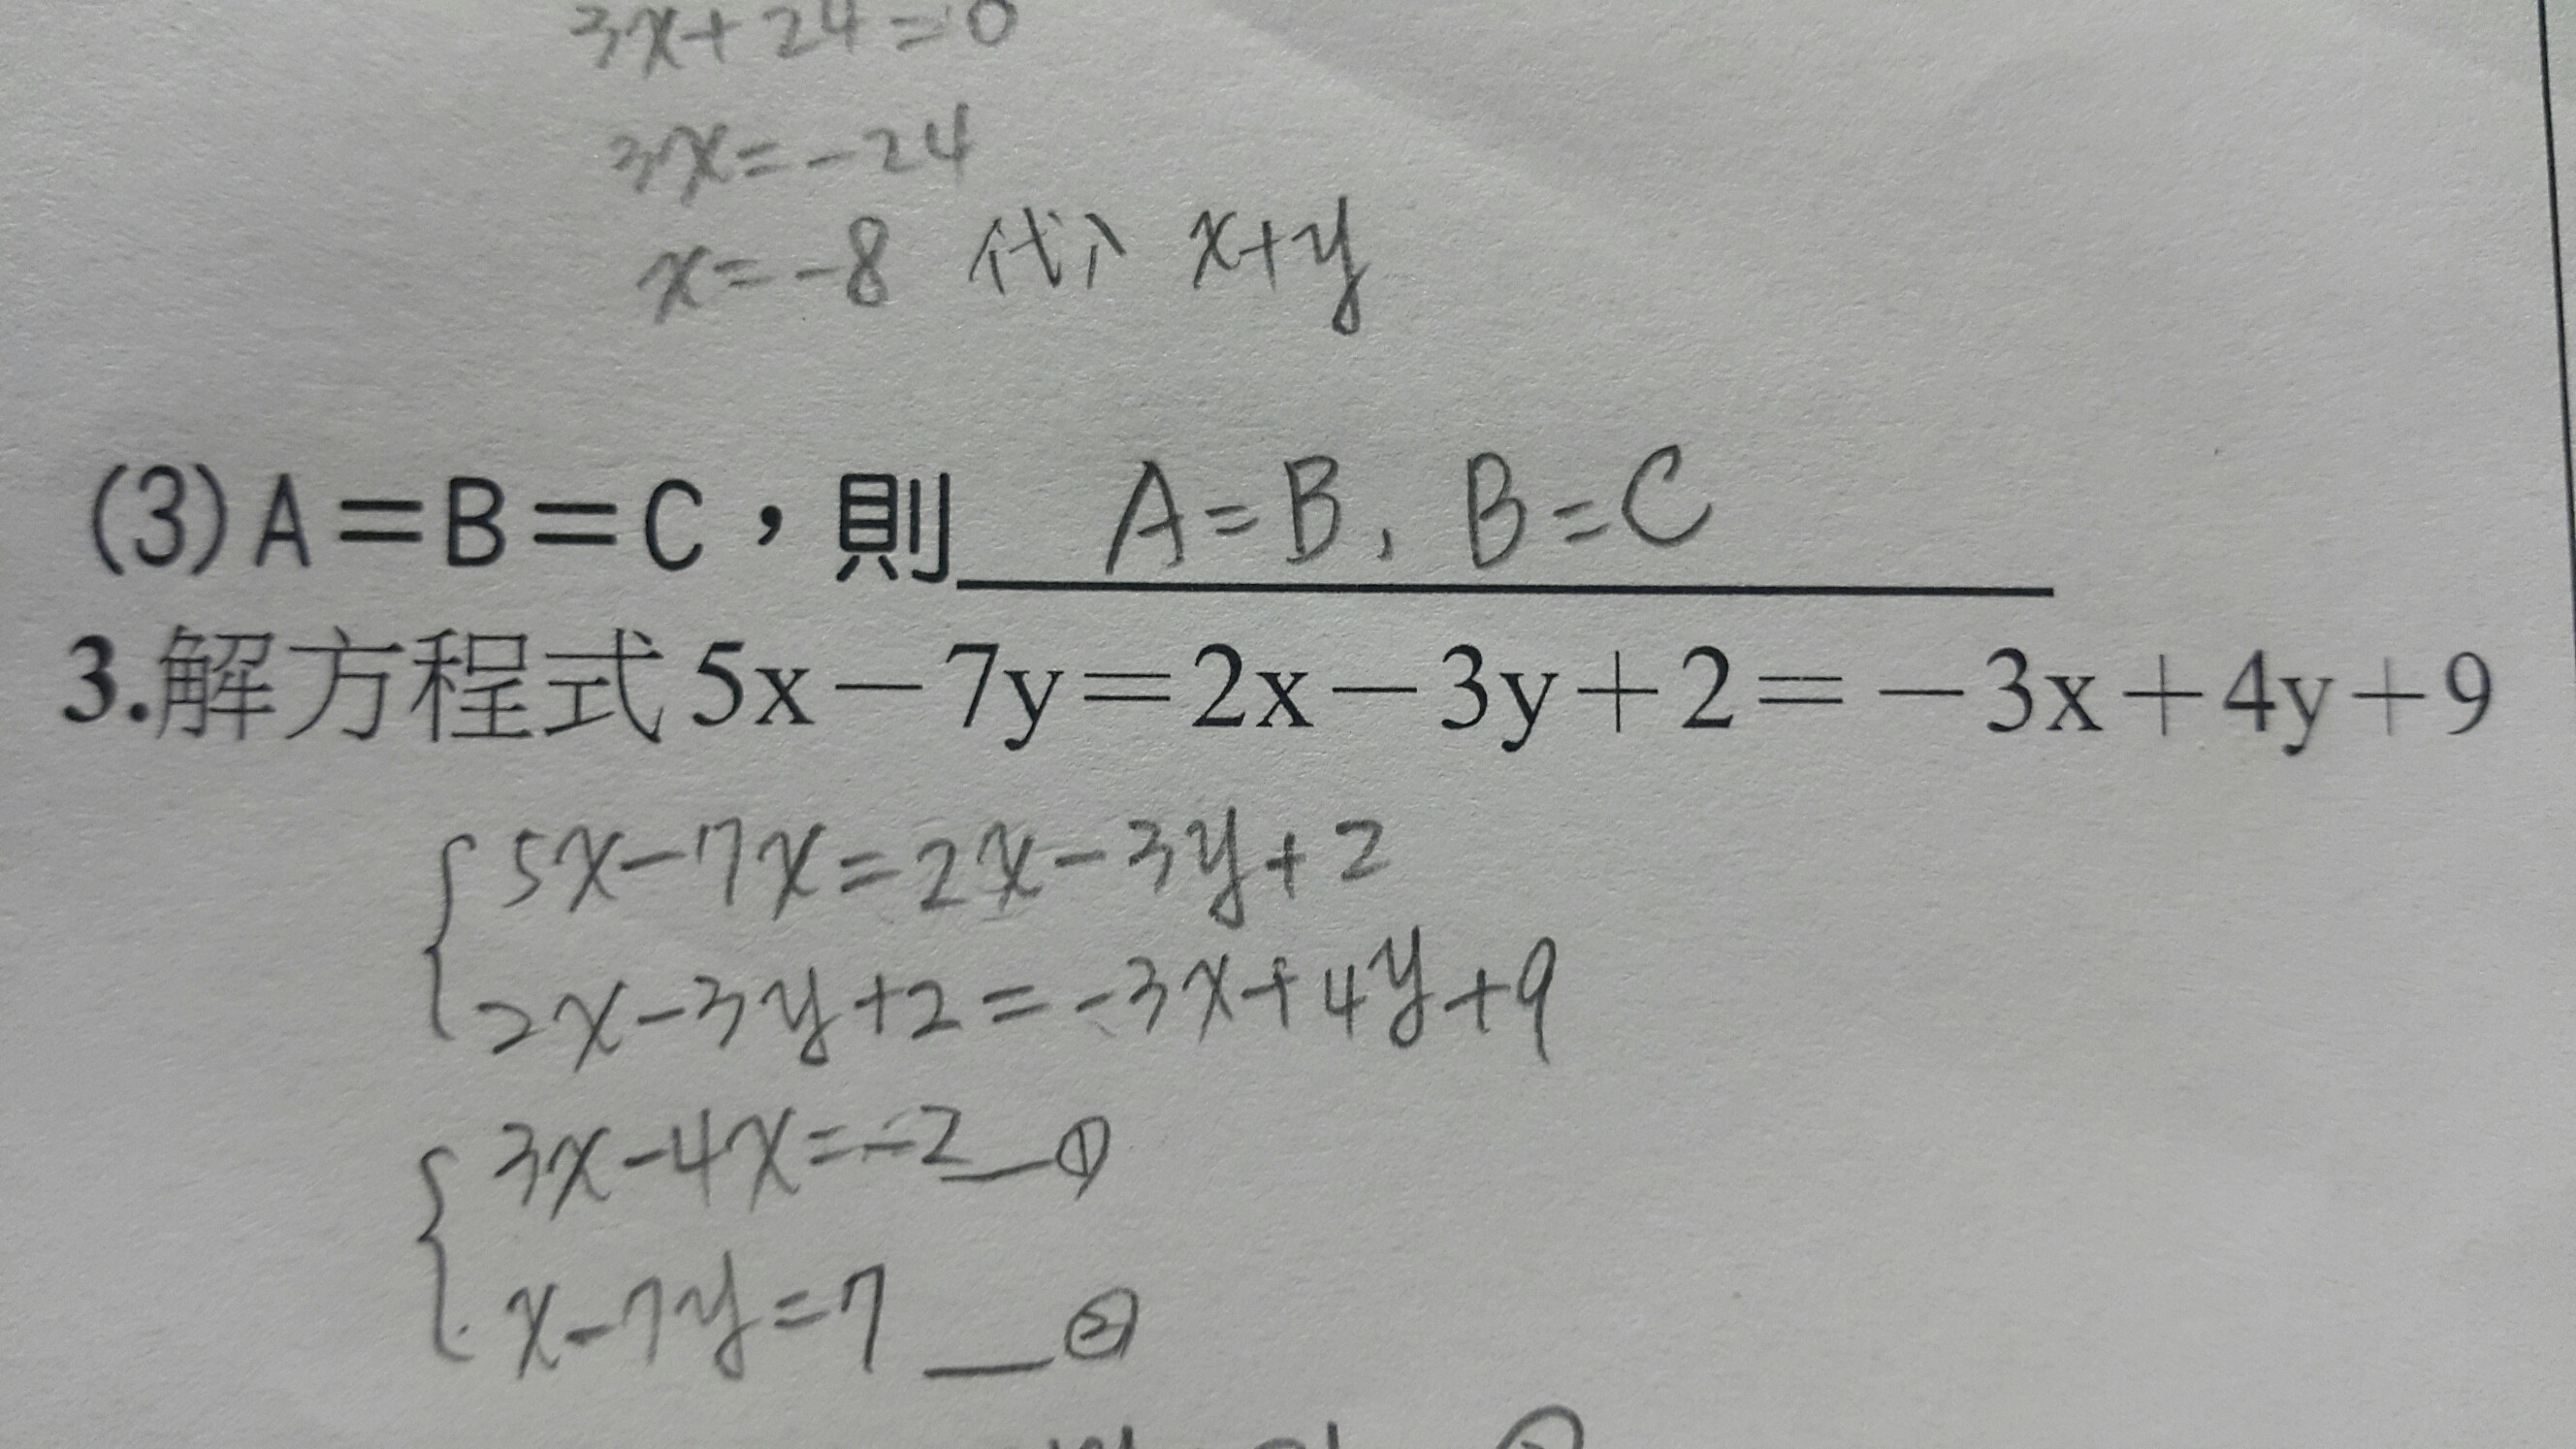 3x+24=0
3x=-24
x=-8 代入 x+y
(3)A=B=C，則 A=B, B=C
3.解方程式5x-7y=2x-3y+2=-3x+4y+9
5x-7x=2x-3y+2
2x-3y+2=-3x+4y+9
3x-4x=-2 ①
x-7y=7 ②